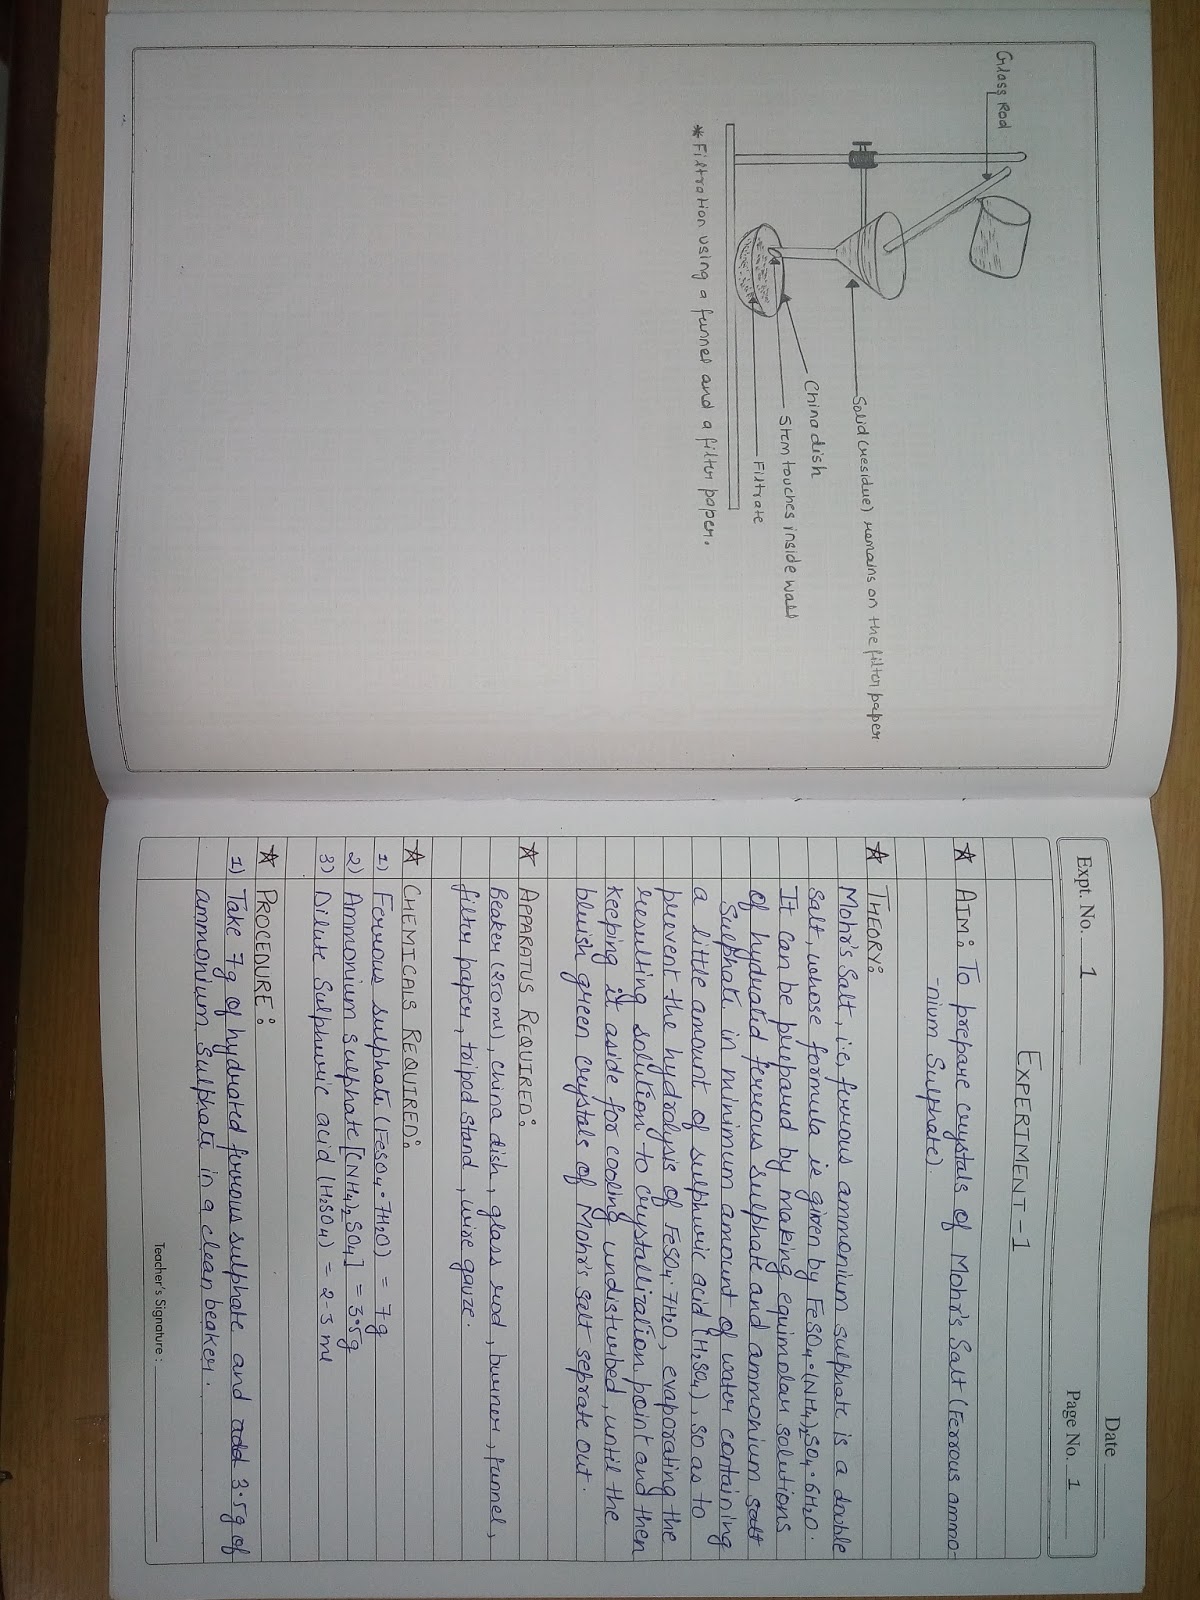 Glass Rod
Solid (residue) remains on the filter paper
China dish
Stem touches inside wall
Filtrate
* Filtration using a funnel and a filter paper.
Date
Expt. No. 1
Page No. 1
EXPERTMENT-1
☆ AIM: To prepare crystals of Mohr's Salt (Ferrous ammo-
-nium Sulphate).
☆ THEORY:
Mohr's Salt, i.e, ferrous ammonium sulphate is a double
salt, whose formula is given by FeSO₄·(NH₄)₂SO₄·6H₂O.
It can be prepared by making equimolar solutions
of hydrated ferrous sulphate and ammonium salt
Sulphate in minimum amount of water containing
a little amount of sulphuric acid (H₂SO₄), so as to
prevent the hydrolysis of FeSO₄·7H₂O, evaporating the
resulting solution to crystallization point and then
keeping it aside for cooling undisturbed, until the
bluish green crystals of Mohr's salt seprate out.
☆ APPARATUS REQUIRED:
Beaker (250ml), china dish, glass rod, burner, funnel,
filter paper, tripod stand, wire gauze.
☆ CHEMICALS REQUIRED:
1) Ferrous sulphate (FeSO₄·7H₂O) = 7g
2) Ammonium sulphate [(NH₄)₂SO₄] = 3.5g
3) Dilute Sulphuric acid (H₂SO₄) = 2-3 ml
☆ PROCEDURE:
1) Take 7g of hydrated ferrous sulphate and add 3.5g of
ammonium sulphate in a clean beaker.
Teacher's Signature :